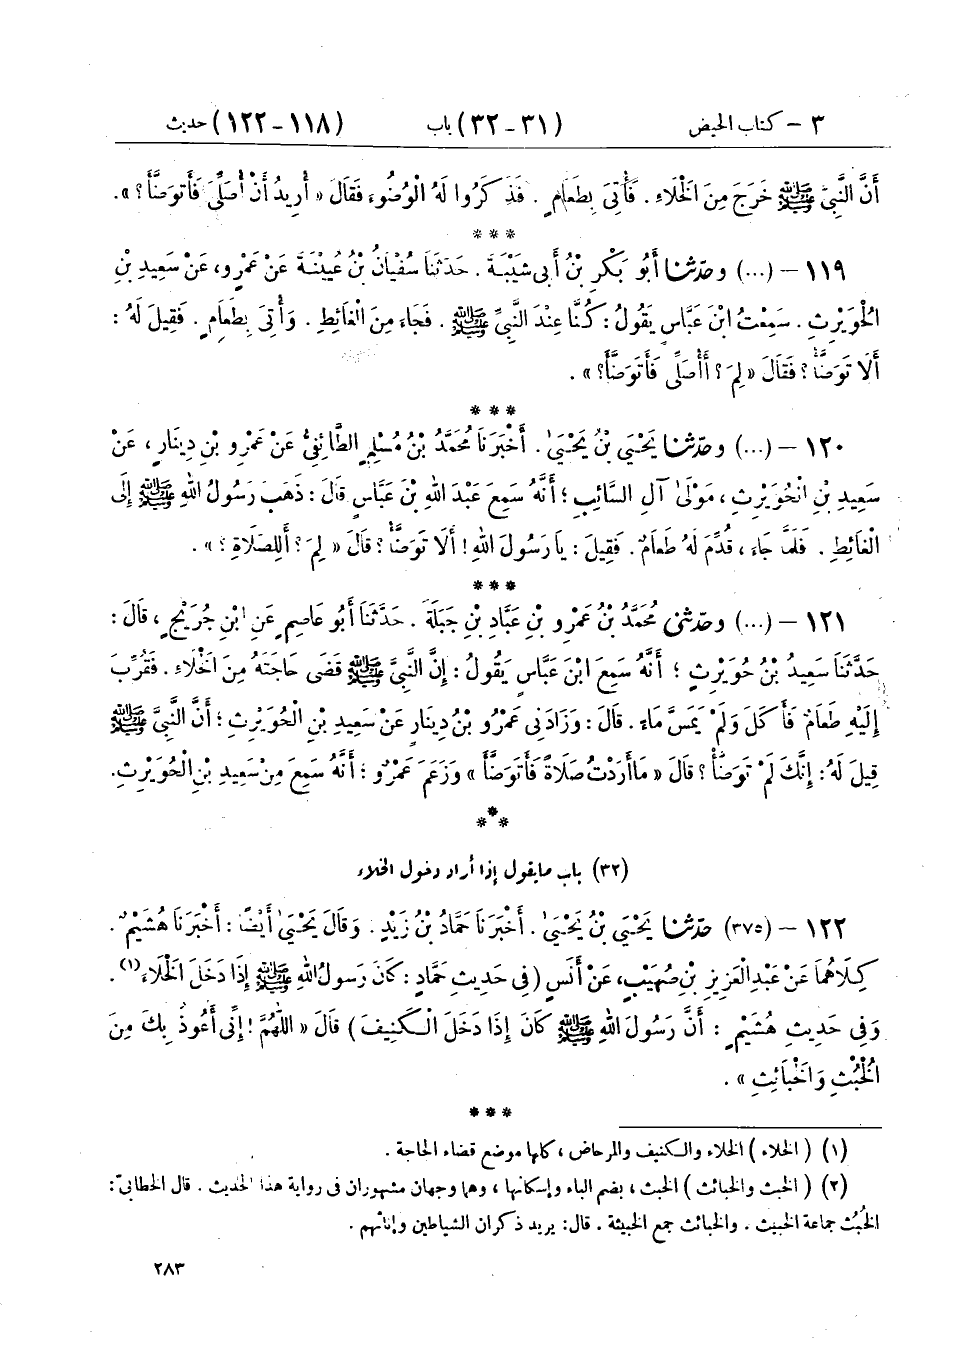 ٣ – كتاب الحيض (٣١ – ٣٢) باب (١١٨ – ١٢٢) حديث
أَنَّ النَّبِيَّ ﷺ خَرَجَ مِنَ الْخَلَاءِ . فَأُتِىَ بِطَعَامٍ . فَذَكَرُوا لَهُ الْوُضُوءَ فَقَالَ « أُرِيدُ أَنْ أُصَلِّىَ فَأَتَوَضَّأَ ؟ » .
* * *
١١٩ – (...) وحدّثنا أَبُو بَكْرِ بْنُ أَبِى شَيْبَةَ . حَدَّثَنَا سُفْيَانُ بْنُ عُيَيْنَةَ عَنْ عَمْرٍو، عَنْ سَعِيدِ بْنِ
الْحُوَيْرِثِ . سَمِعْتُ ابْنَ عَبَّاسٍ يَقُولُ : كُنَّا عِنْدَ النَّبِيِّ ﷺ . فَجَاءَ مِنَ الْغَائِطِ . وَأُتِىَ بِطَعَامٍ . فَقِيلَ لَهُ :
أَلَا تَوَضَّأُ ؟ فَقَالَ « لِمَ ؟ أَأُصَلِّى فَأَتَوَضَّأَ ؟ » .
* * *
١٢٠ – (...) وحدّثنا يَحْيَى بْنُ يَحْيَىٰ . أَخْبَرَنَا مُحَمَّدُ بْنُ مُسْلِمٍ الطَّائِفِىُّ عَنْ عَمْرِو بْنِ دِينَارٍ ، عَنْ
سَعِيدِ بْنِ الْحُوَيْرِثِ ، مَوْلَىٰ آلِ السَّائِبِ ؛ أَنَّهُ سَمِعَ عَبْدَ اللهِ بْنَ عَبَّاسٍ قَالَ : ذَهَبَ رَسُولُ اللهِ ﷺ إِلَى
الْغَائِطِ . فَلَمَّا جَاءَ ، قُدِّمَ لَهُ طَعَامٌ . فَقِيلَ : يَا رَسُولَ اللهِ ! أَلَا تَوَضَّأُ ؟ قَالَ « لِمَ ؟ أَلِلصَّلَاةِ ؟ » .
* * *
١٢١ – (...) وحدّثنى مُحَمَّدُ بْنُ عَمْرِو بْنِ عَبَّادِ بْنِ جَبَلَةَ . حَدَّثَنَا أَبُو عَاصِمٍ عَنِ ابْنِ جُرَيْجٍ ، قَالَ :
حَدَّثَنَا سَعِيدُ بْنُ حُوَيْرِثٍ ؛ أَنَّهُ سَمِعَ ابْنَ عَبَّاسٍ يَقُولُ : إِنَّ النَّبِيَّ ﷺ قَضَى حَاجَتَهُ مِنَ الْخَلَاءِ . فَقُرِّبَ
إِلَيْهِ طَعَامٌ فَأَكَلَ وَلَمْ يَمَسَّ مَاءً . قَالَ : وَزَادَنِى عَمْرُو بْنُ دِينَارٍ عَنْ سَعِيدِ بْنِ الْحُوَيْرِثِ ؛ أَنَّ النَّبِيَّ ﷺ
قِيلَ لَهُ : إِنَّكَ لَمْ تَوَضَّأْ ؟ قَالَ « مَا أَرَدْتُ صَلَاةً فَأَتَوَضَّأَ » وَزَعَمَ عَمْرٌو : أَنَّهُ سَمِعَ مِنْ سَعِيدِ بْنِ الْحُوَيْرِثِ.
* * *
(٣٢) باب ما يقول إذا أراد دخول الخلاء
١٢٢ – (٣٧٥) حدّثنا يَحْيَى بْنُ يَحْيَىٰ . أَخْبَرَنَا حَمَّادُ بْنُ زَيْدٍ . وَقَالَ يَحْيَىٰ أَيْضًا : أَخْبَرَنَا هُشَيْمٌ .
كِلَاهُمَا عَنْ عَبْدِ الْعَزِيزِ بْنِ صُهَيْبٍ، عَنْ أَنَسٍ (فِى حَدِيثِ حَمَّادٍ : كَانَ رَسُولُ اللهِ ﷺ إِذَا دَخَلَ الْخَلَاءَ (١) .
وَفِى حَدِيثِ هُشَيْمٍ : أَنَّ رَسُولَ اللهِ ﷺ كَانَ إِذَا دَخَلَ الْكَنِيفَ ) قَالَ « اللّٰهُمَّ ! إِنِّى أَعُوذُ بِكَ مِنَ
الْخُبْثِ وَالْخَبَائِثِ » .
* * *
(١) ( الخلاء ) الخلاء والكنيف والمرحاض ، كلها موضع قضاء الحاجة .
(٢) ( الخبث والخبائث ) الخبث ، بضم الباء وإسكانها ، وهما وجهان مشهوران فى رواية هذا الحديث . قال الخطابىّ :
الخُبُث جماعة الخبيث . والخبائث جمع الخبيثة . قال : يريد ذكران الشياطين وإناثهم .
٢٨٣